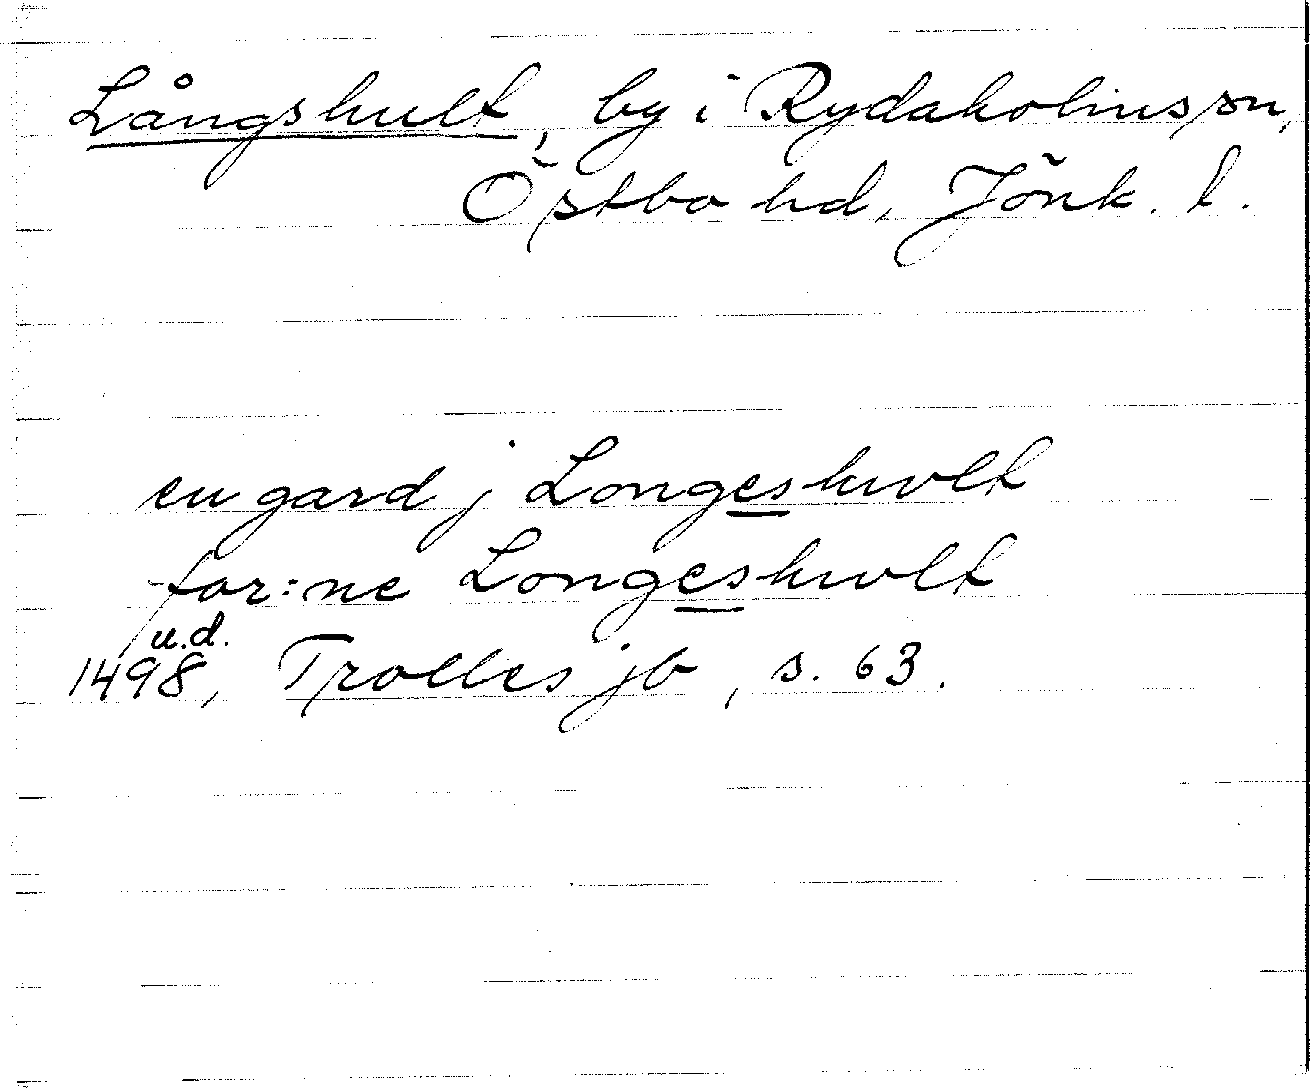 Långshult, by i Rydaholms sn,
Östbo hd, Jönk. l.
en gard j Longeshwlt
for:ne Longeshwlt
u.d.
1498, Trolles jb, s. 63.